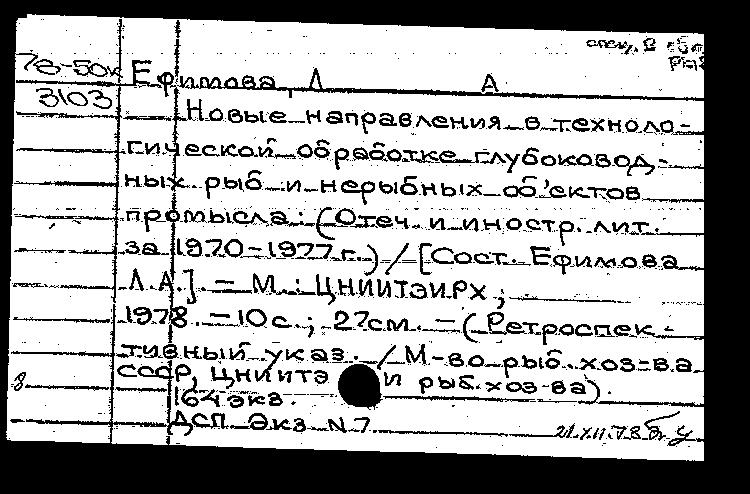 спец. В
78-50к Ефимова, Л А
3103 Новые направления в техноло-
гической обработке глубоковод-
ных рыб и нерыбных об'ектов
промысла: (Отеч. и иностр. лит.
за 1970-1977 г.) / [Сост. Ефимова
Л.А.]. - М.: ЦНИИТЭИРХ;
1978. - 10 с.; 27 см. - (Ретроспек-
тивный указ. / М-во рыб. хоз-ва
СССР, ЦНИИТЭИ рыб. хоз-ва).
164 экз.
ДСП Экз N 7 21.XII.78